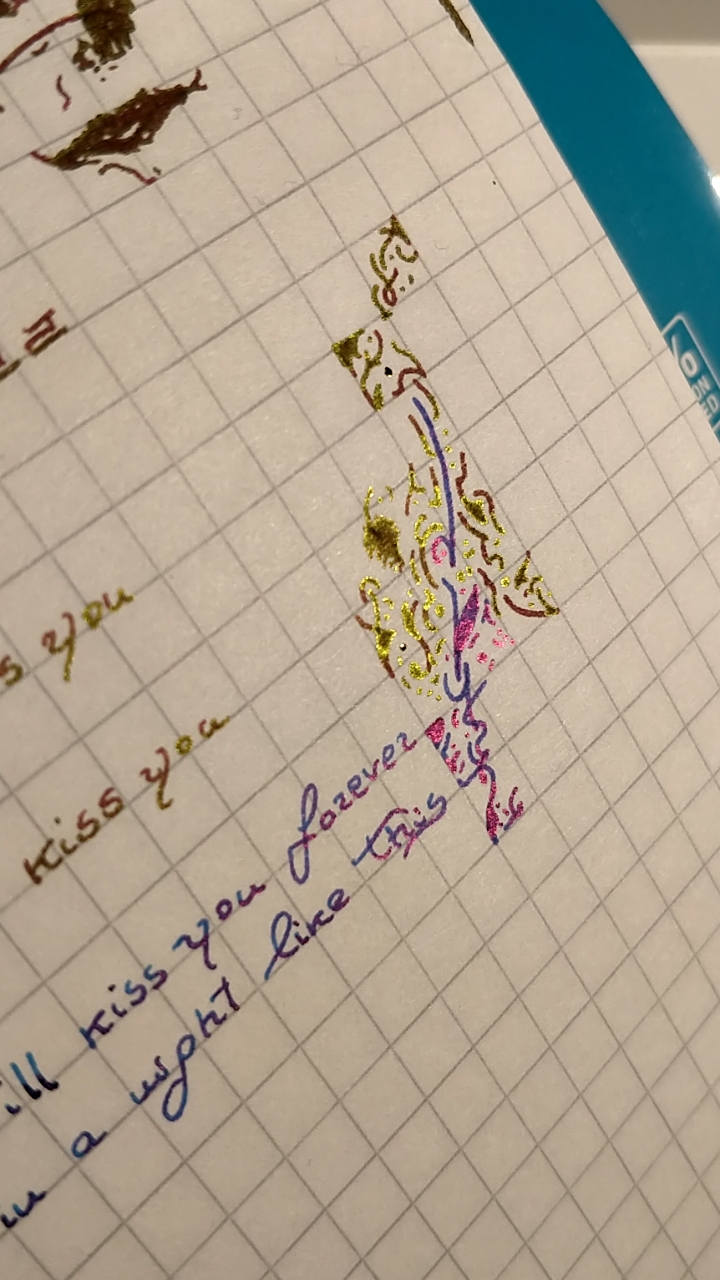 s you
kiss you
ill kiss you forever
in a night like this